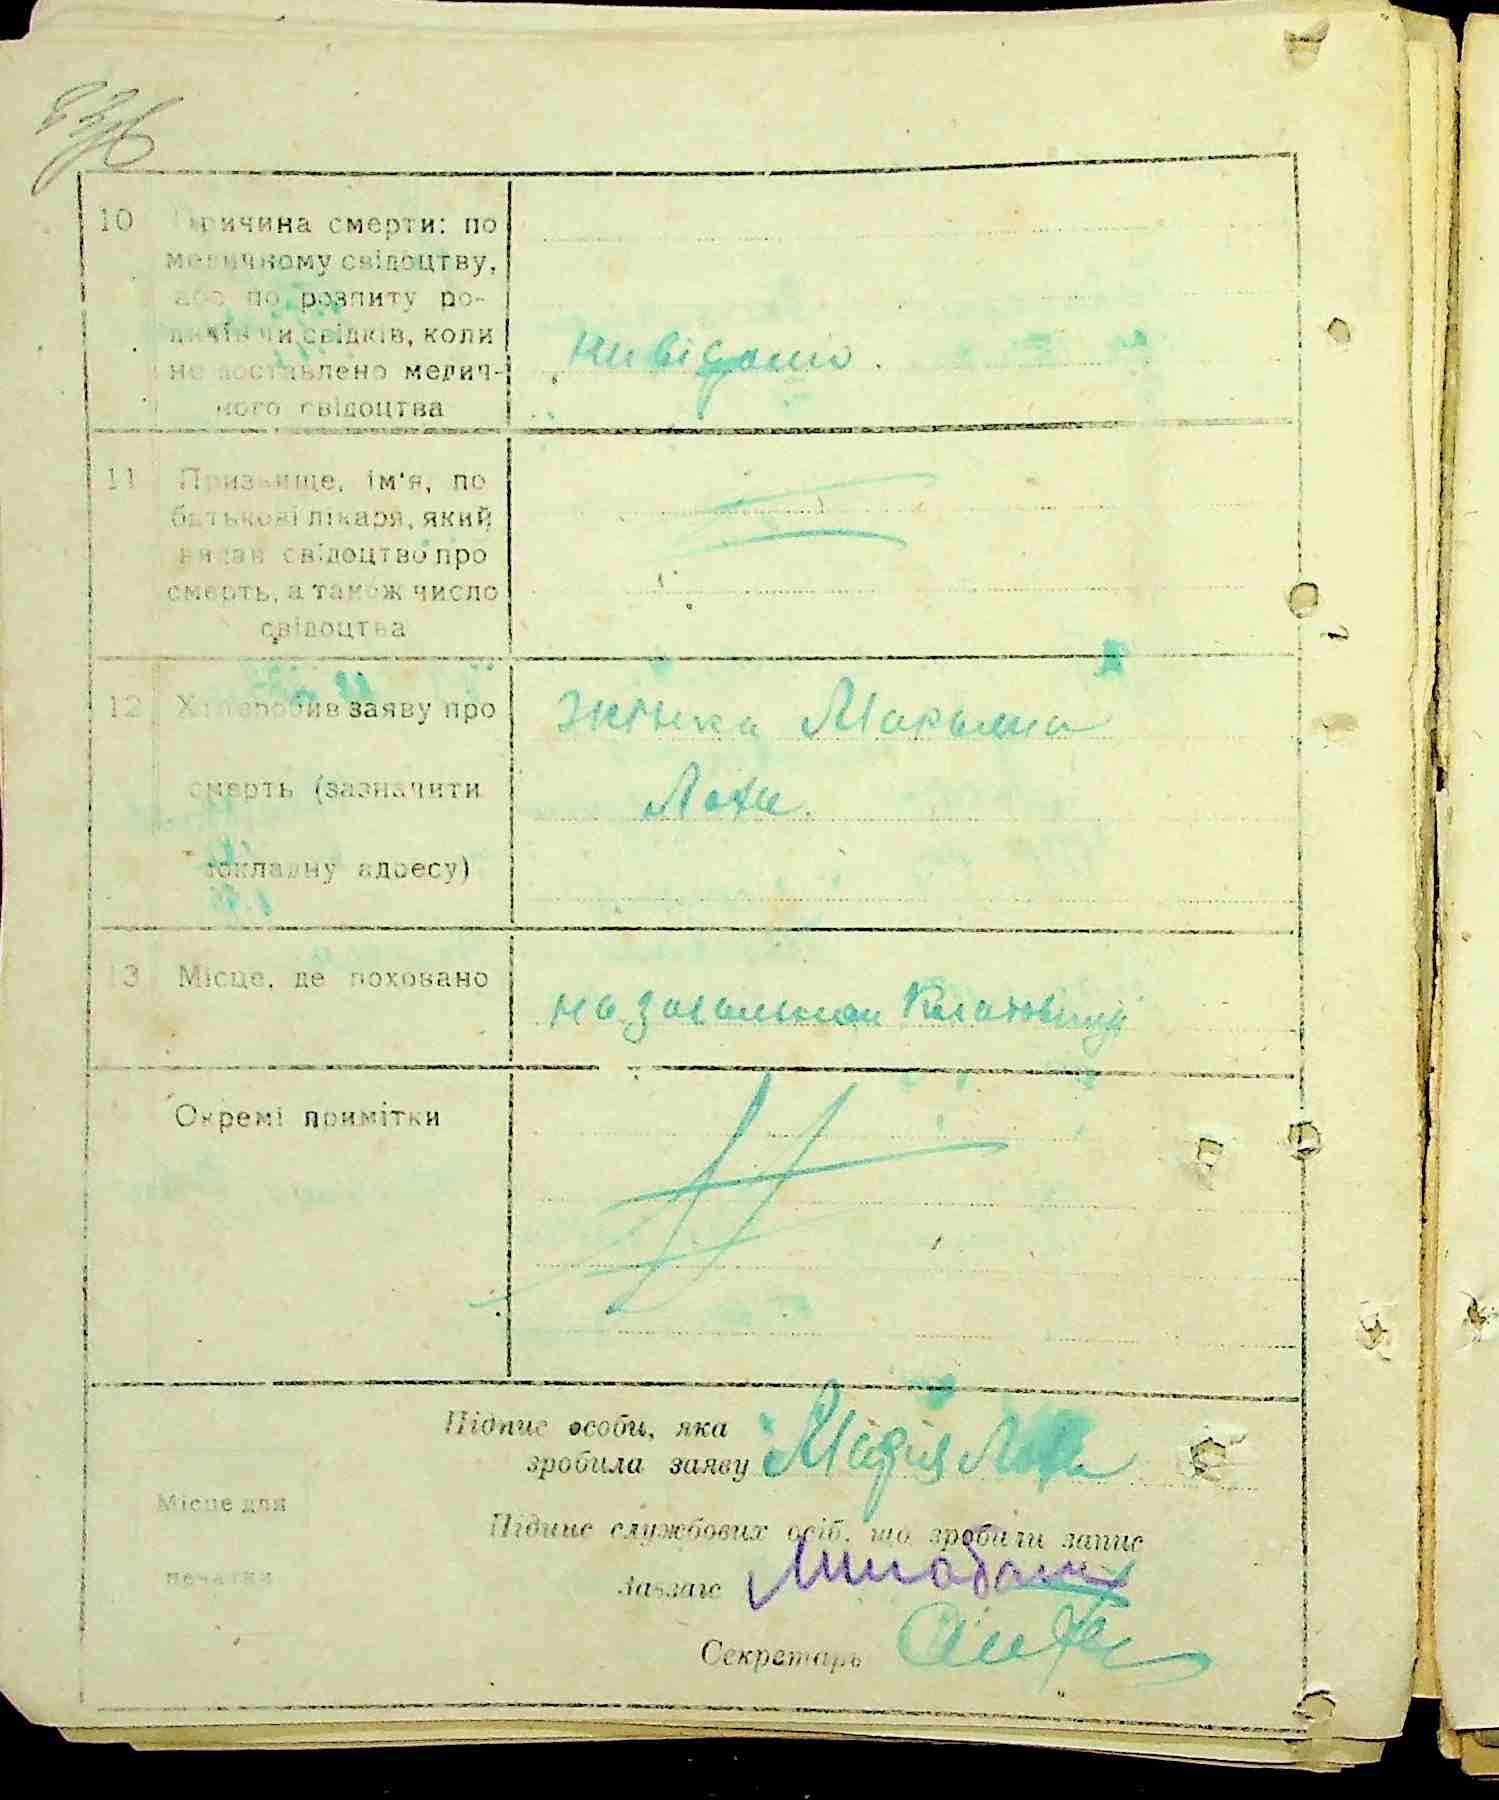 236
10 Причина смерти: по
медичному свідоцтву,
або по розпиту ро-
дичів чи свідків, коли
не доставлено медич-
ного свідоцтва
невідомо.
11 Призвище, ім'я, по
батькові лікаря, який
видав свідоцтво про
смерть, а також число
свідоцтва
12 Хто зробив заяву про
смерть (зазначити
докладну адресу)
жінка
13 Місце, де поховано
на загальном
Окремі примітки
Підпис особи, яка
зробила заяву
Місце для
печатки
Підпис службових осіб, що зробили запис
Завзагс
Секретарь